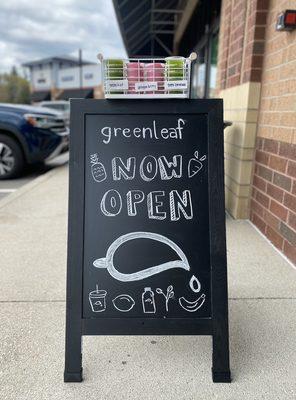 greenleaf
NOW
OPEN